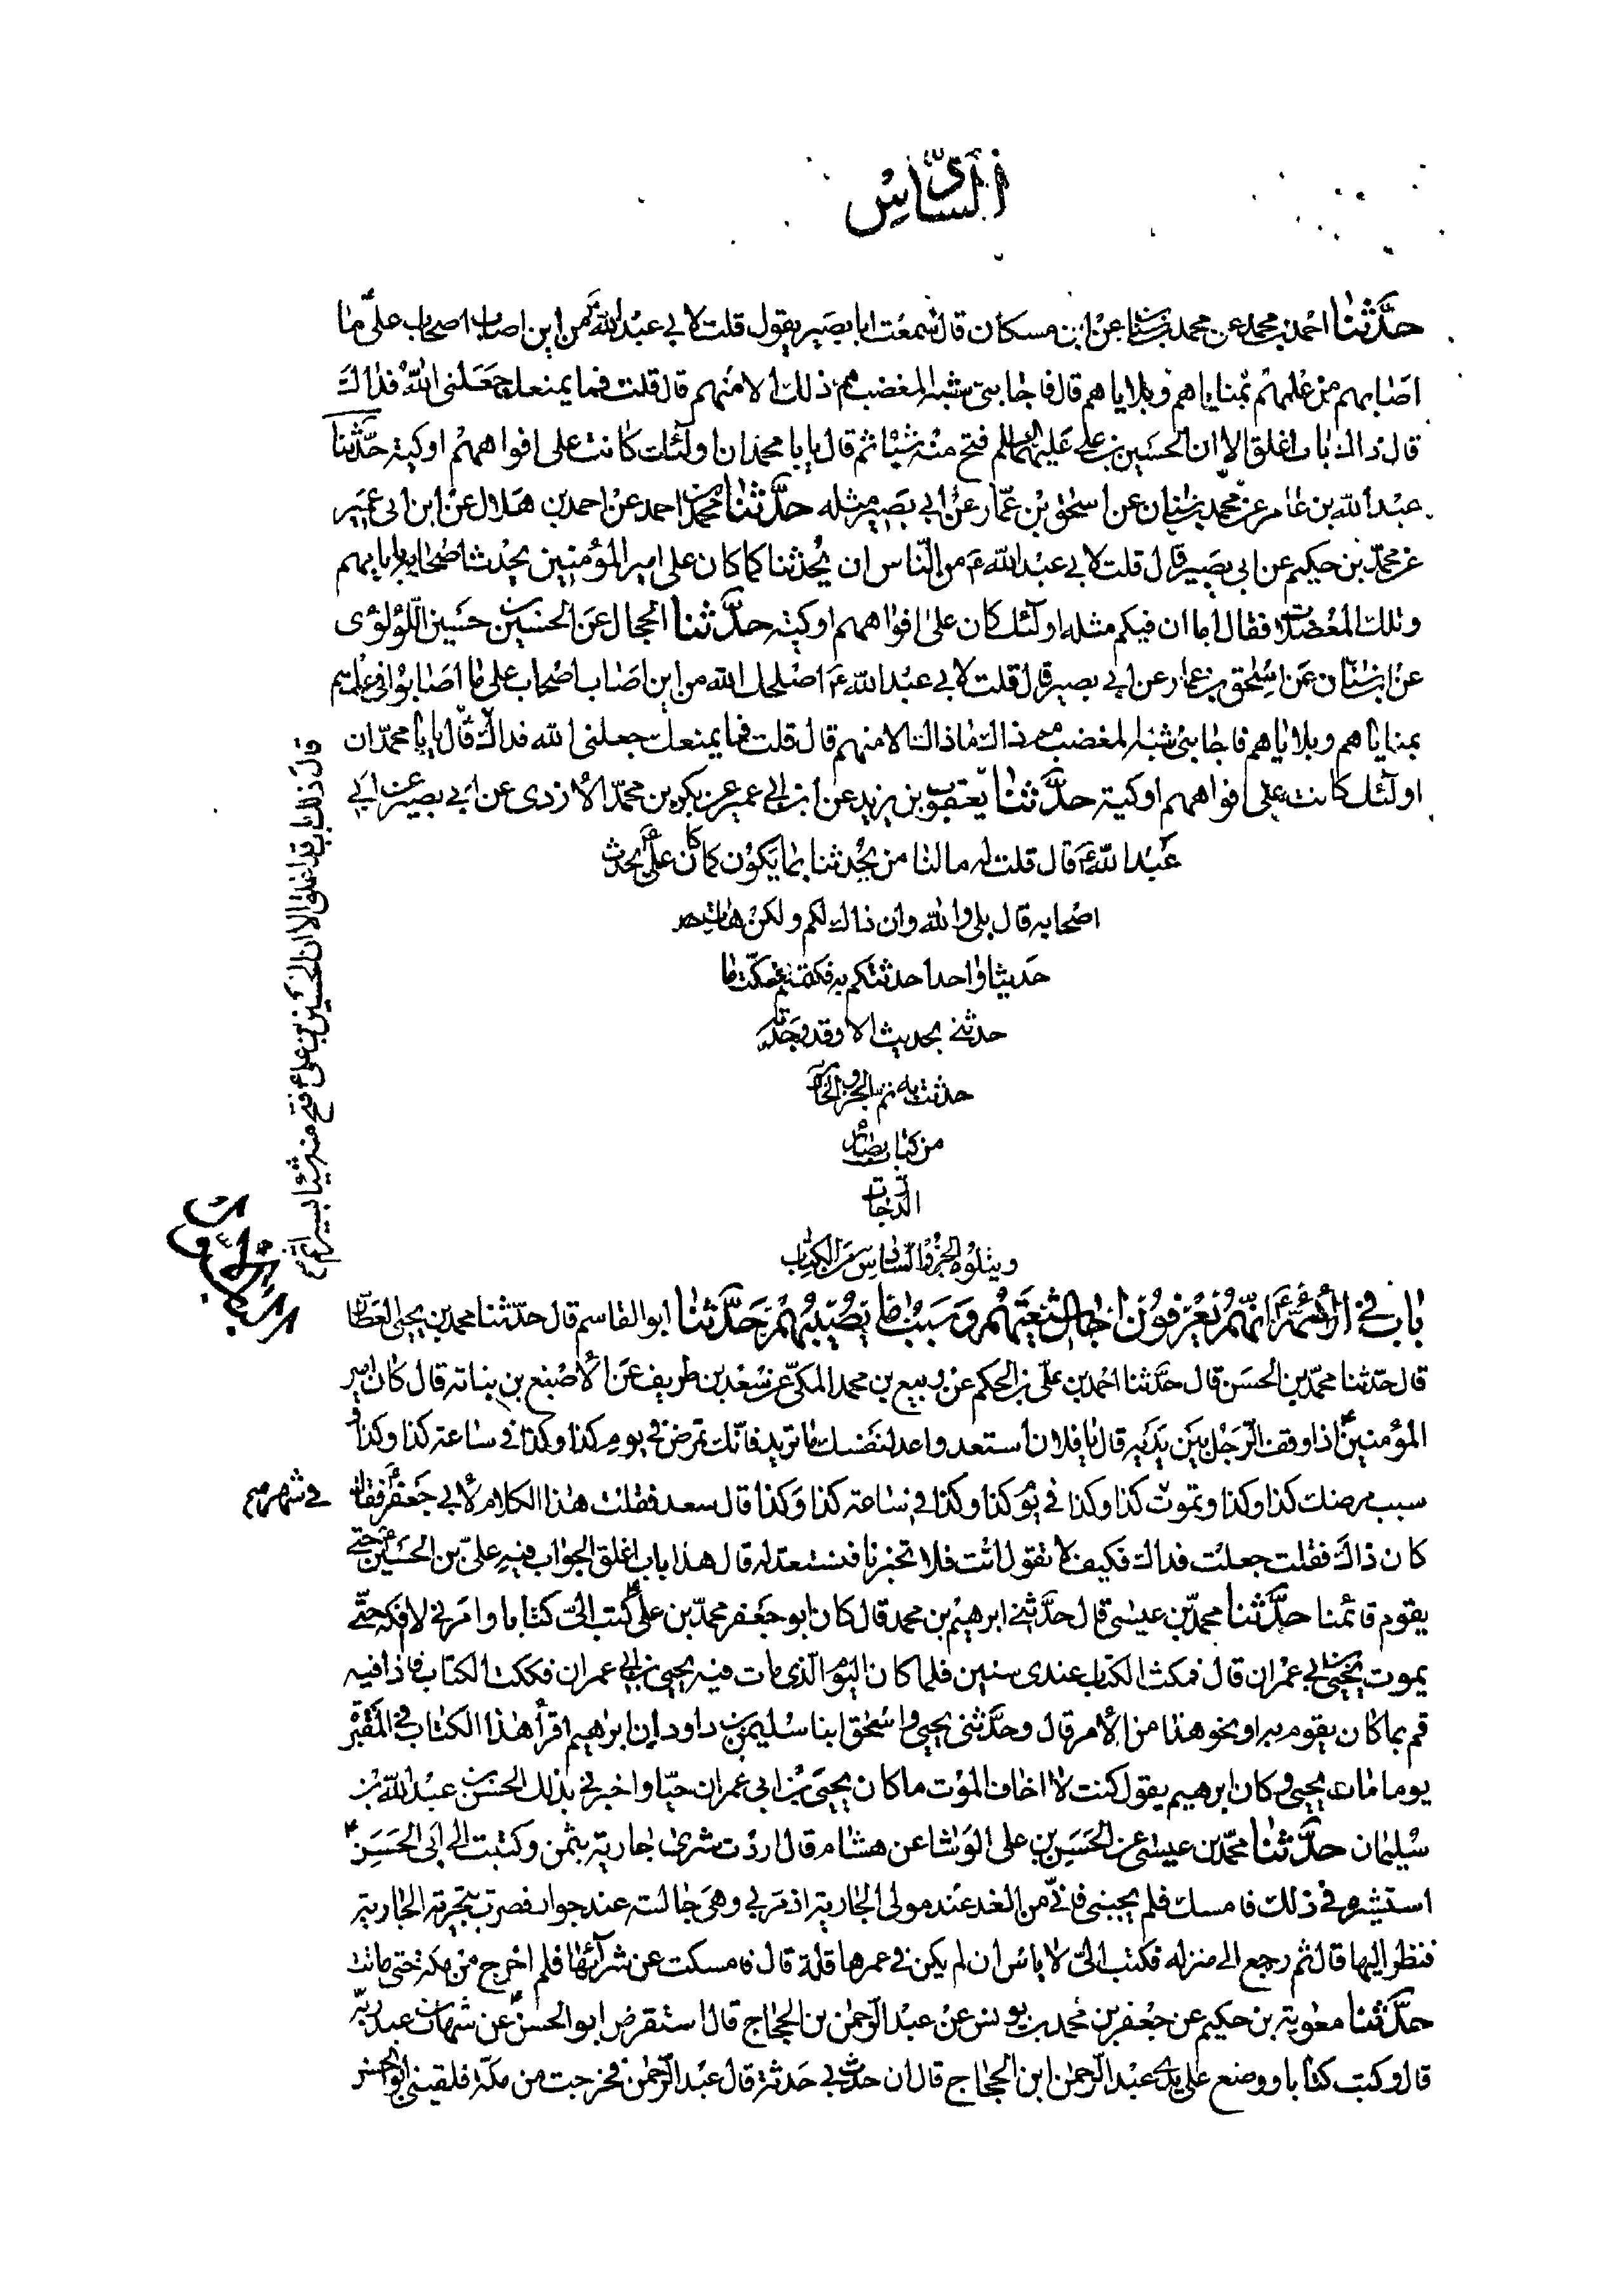 السادس
حدثنا احمد بن محمد عن محمد بن سنان عن ابن مسكان قال سمعت ابا بصير يقول قلت لابي عبد الله ع من اين اصاب اصحاب علي ع ما
اصابهم من علمهم بمناياهم وبلاياهم قال فاجابنى شبه المغضب مم ذلك الا منهم قال قلت فما يمنعك جعلنى الله فداك
قال ذاك باب اغلق الا ان الحسين بن على عليهما السلم فتح منه شيئا ثم قال يا با محمد ان اولئك كانت على افواههم اوكية حدثنا
عبد الله بن عامر عن محمد بن سنان عن اسحق بن عمار عن ابي بصير مثله حدثنا محمد بن احمد عن احمد بن هلال عن ابن ابى عمير
عن محمد بن حكيم عن ابى بصير قال قلت لابي عبد الله ع من الناس ان يحدثنا كما كان على امير المؤمنين يحدث اصحابه بلاياهم
وتلك المعضلات فقال اما ان فيكم مثله اولئك كان على افواههم اوكية حدثنا الحجال عن الحسن بن حسين اللؤلؤى
عن ابن سنان عن اسحق بن عمار عن ابي بصير قال قلت لابي عبد الله ع اصلحك الله من اين اصاب اصحاب على ما اصابوا فى علمهم
بمناياهم وبلاياهم فاجابنى شبه المغضب مم ذاك ما ذاك الا منهم قال قلت فما يمنعك جعلنى الله فداك قال يا با محمد ان
اولئك كانت على افواههم اوكية حدثنا يعقوب بن يزيد عن ابن ابي عمير عن بكر بن محمد الازدى عن ابي بصير عن ابي
عبد الله ع قال قلت له ما لنا من يحدثنا بما يكون كما كان على ع يحدث
اصحابه قال بلى والله وان ذاك لكم ولكن هات
حديثا واحدا حدثتكم به فكتمتم فسكت ما
حدثنى بحديث الا وقد وجدته
حدثت به تم الجزو الخامس
من كتاب بصائر
الدرجات
ويتلوه الجزو السادس من الكتاب
قال ذلك باب قد اغلق الا ان الحسين بن على ع فتح منه شيئا يسيرا
باب فى ان الائمة ع انهم يعرفون اجال شيعتهم وسبب ما يصيبهم حدثنا ابو القاسم قال حدثنا محمد بن يحيى العطار
قال حدثنا محمد بن الحسن قال حدثنا احمد بن على بن الحكم عن ربيع بن محمد المكى عن سعد بن طريف عن الاصبغ بن بناته قال كان امير
المؤمنين ع اذا وقف الرجل بين يديه قال يا فلان استعد واعد لنفسك ما تريد فانك تمرض فى يوم كذا وكذا فى ساعة كذا وكذا و
سبب مرضك كذا وكذا وتموت كذا وكذا فى يوم كذا وكذا فى ساعة كذا وكذا قال سعد فقلت هذا الكلام لابي جعفر ع فقال
فى شهر
كان ذاك فقلت جعلت فداك فكيف لا تقول انت فلا تخبرنا فنستعد له قال هذا باب اغلق الجواب فيه على بن الحسين ع حتى
يقوم قائمنا حدثنا محمد بن عيسى قال حدثنى ابرهيم بن محمد قال كان ابو جعفر محمد بن على ع كتب الى كتابا وامرنى لا افكه حتى
يموت يحيى بن ابي عمران قال فمكث الكتاب عندى سنين فلما كان اليوم الذى مات فيه يحيى بن ابي عمران فككت الكتاب فاذا فيه
قم بما كان يقوم به او نحو هذا من الامر قال وحدثنى يحيى واسحق ابنا سليمان بن داود ان ابرهيم اقرأ هذا الكتاب فى المقبرة
يوما مات يحيى وكان ابرهيم يقول كنت لا اخاف الموت ما كان يحيى بن ابي عمران حيا واخبرنى بذلك الحسن بن عبد الله بن
سليمان حدثنا محمد بن عيسى عن الحسين بن على الوشا عن هشام قال اردت شرى جارية بثمن وكتبت الى ابى الحسن ع
استشيره فى ذلك فامسك فلم يجبنى فانى من الغد عند مولى الجارية اذ مر بي وهى جالسة عند جوار فصرت بتجربة الجارية
فنظر اليها قال ثم رجع الى منزله فكتب الى لا باس ان لم يكن فى عمرها قلة قال فامسكت عن شرائها فلم اخرج من مكة حتى ماتت
حدثنا معوية بن حكيم عن جعفر بن محمد بن يونس عن عبد الرحمن بن الحجاج قال استقرض ابو الحسن ع عن شهاب عبد ربه
قال وكتب كتابا ووضع على يدى عبد الرحمن ابن الحجاج قال ان حدث بي حدث قال عبد الرحمن فخرجت من مكة فلقينى ابو الحسن